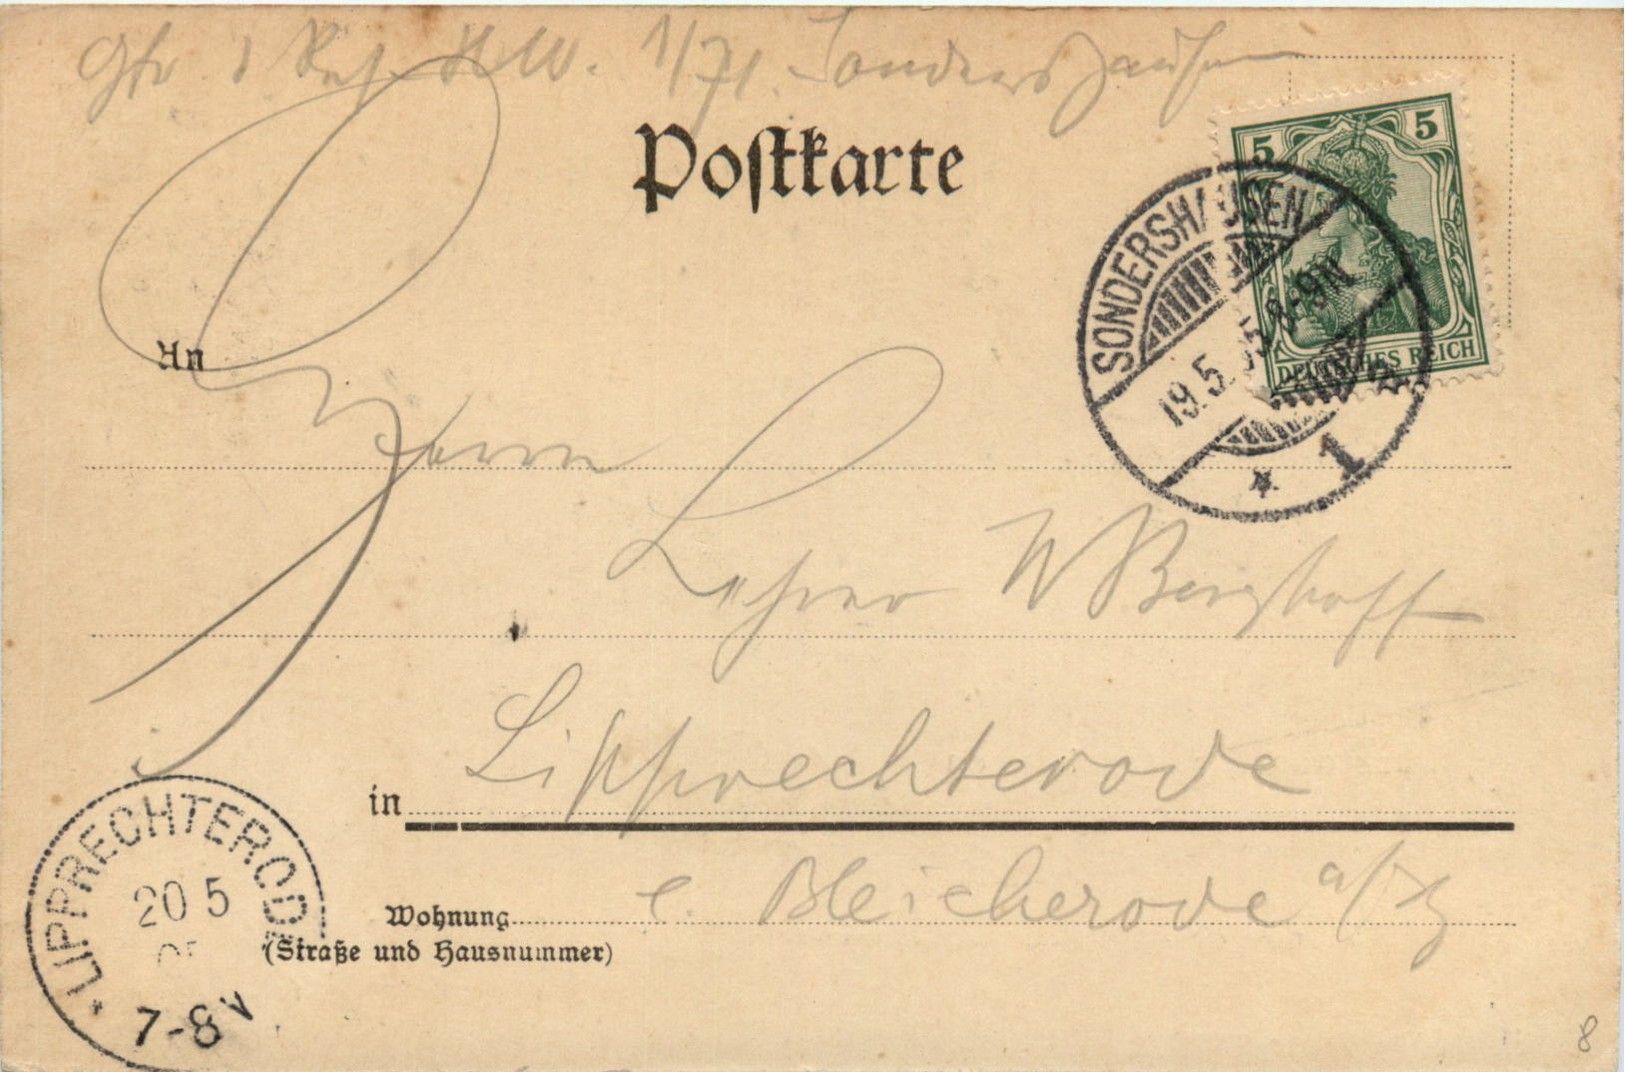 1/71. Sondershausen
Postkarte
5 5
DEUTSCHES REICH
SONDERSHAUSEN
19.5. 05 8-9N
* 1
An
Herrn
Lehrer W Berghoff
in Lipprechterode
Wohnung
(Straße und Hausnummer)
Bleicherode a/H
* LIPPRECHTERODE
20 5
05
7-8V
8